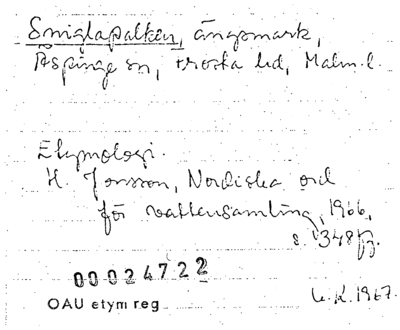 Smiglapalken, ängsmark,
Äspinge sn, Frosta hd, Malm. l.
Etymologi.
H. Jonsson, Nordiska ord
för vattensamling, 1966,
s. 348 ff.
00024722
OAU etym reg
U.K. 1967.